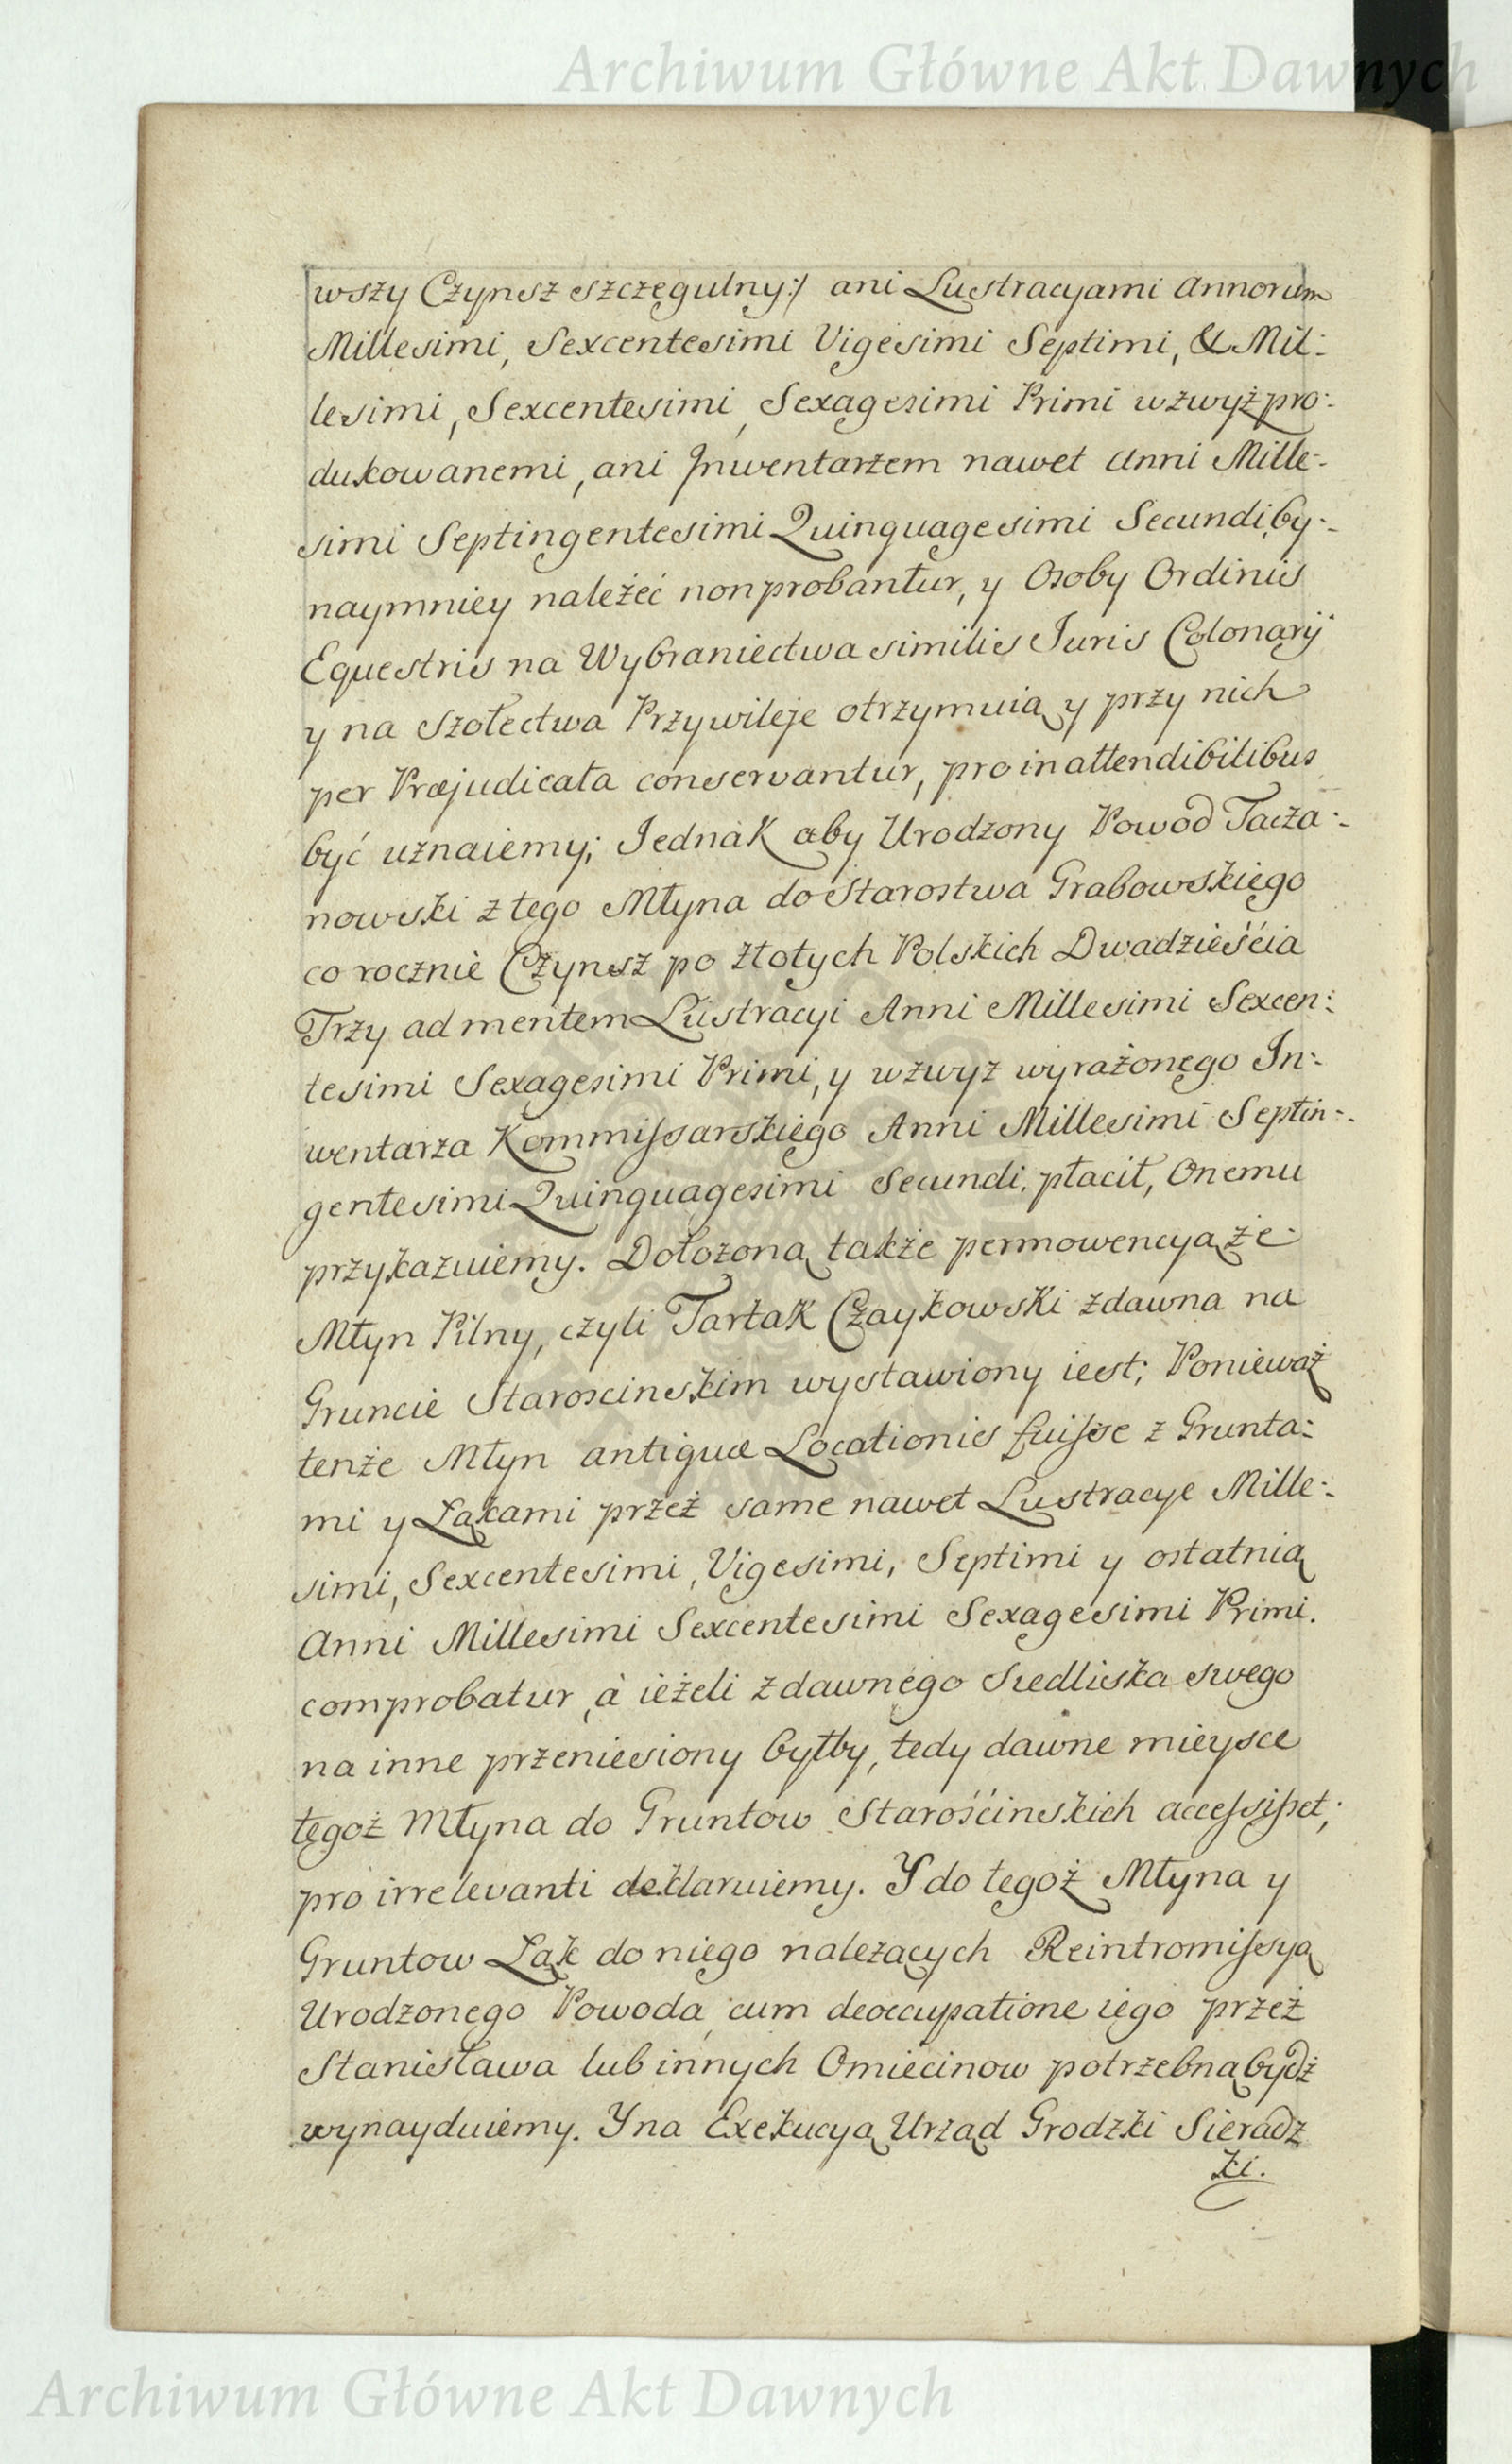 Archiwum Główne Akt Dawnych
wszy Czynsz szczegulny:/ ani Lustracyami Annorum
Millesimi, Sexcentesimi Vigesimi Septimi, & Mil:
lesimi, Sexcentesimi, Sexagesimi Primi wzwyż pro:
dukowanemi, ani Jnwentarzem nawet Anni Mille:
simi Septingentesimi Quinquagesimi Secundi, by:
naymniey należéć non probantur, y Osoby Ordinis
Equestris na Wybraniectwa similis Juris Colonarij
y na Szołectwa Przywileje otrzymuią y przy nich
per Præjudicata conservantur, pro inattendibilibus
być uznaiemy; Jednak aby Urodzony Powod Tacza:
nowski z tego Młyna do Starostwa Grabowskiego
co rocznie Czynsz po złotych Polskich Dwadzieścia
Trzy ad mentem Lustracyi Anni Millesimi Sexcen:
tesimi Sexagesimi Primi, y wzwyz wyrażonego In:
wentarza Kommissarskiego Anni Millesimi Septin:
gentesimi Quinquagesimi Secundi, płacił, Onemu
przykazuiemy. Dołożoną także permowencyą że
Młyn Pilny, czyli Tartak Czaykowski zdawna na
Gruncie Staroscinskim wystawiony iest; Ponieważ
tenże Młyn antiquæ Locationis fuisse z Grunta:
mi y Łąkami przeż same nawet Lustracye Mille:
simi, Sexcentesimi, Vigesimi, Septimi y ostatnią
Anni Millesimi Sexcentesimi Sexagesimi Primi.
comprobatur, à ieżeli zdawnego Siedliska swego
na inne przeniesiony byłby, tedy dawne mieysce
tegoż Młyna do Gruntow Starościnskich accessisset;
pro irrelevanti deklaruiemy. Y do tegoż Młyna y
Gruntow Łąk do niego należących Reintromissyą
Urodzonego Powoda, cum deoccupatione iego przeż
Stanisława lub innych Omiecinow potrzebną bydź
wynayduiemy. Y na Exekucyą Urząd Grodzki Sieradz
ki.
Archiwum Główne Akt Dawnych